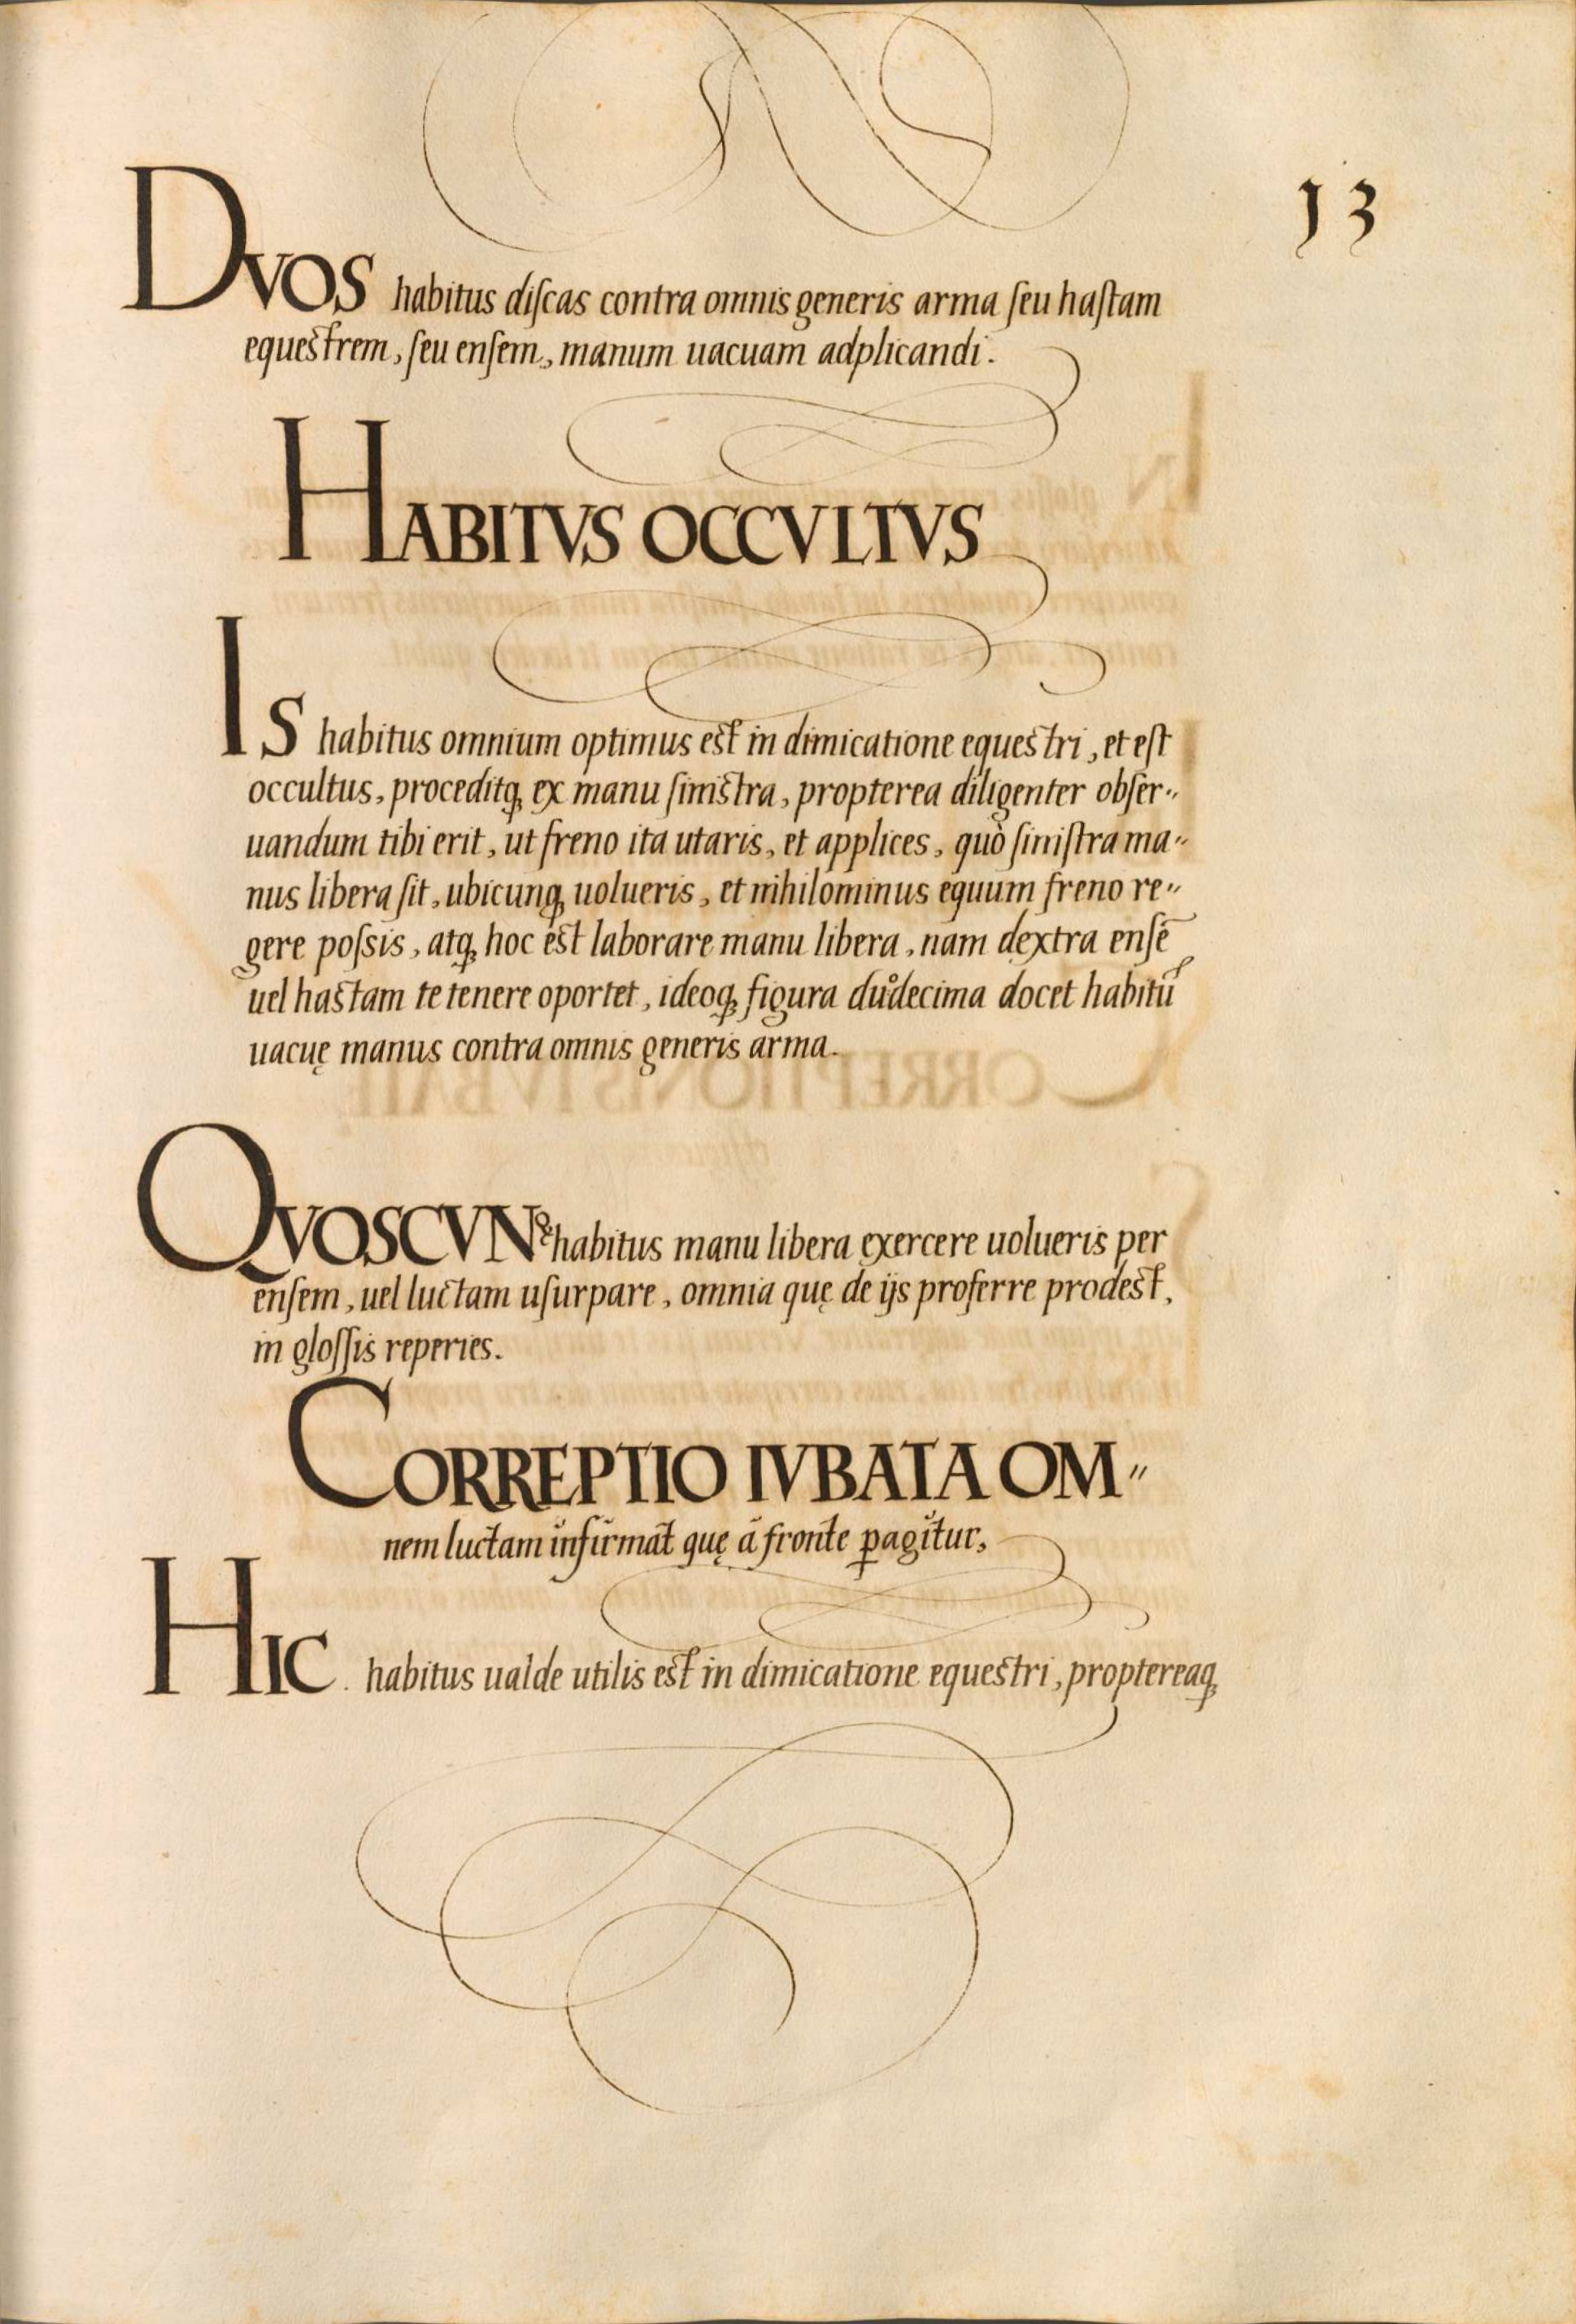 13
DVOS habitus diſcas contra omnis generis arma ſeu haſtam
equeſtrem, ſeu enſem, manum uacuam adplicandi.
HABITVS OCCVLTVS
IS habitus omnium optimus eſt in dimicatione equeſtri, et eſt
occultus, proceditqꝫ ex manu ſiniſtra, propterea diligenter obſer〃
uandum tibi erit, ut freno ita utaris, et applices, quò ſiniſtra ma〃
nus libera ſit, ubicunqꝫ uolueris, et nihilominus equum freno re〃
gere poſsis, atqꝫ hoc eſt laborare manu libera, nam dextra enſē
uel haſtam te tenere oportet, ideoqꝫ figura duͦdecima docet habitū
uacuę manus contra omnis generis arma.
QVOSCVNqꝫ habitus manu libera exercere uolueris per
enſem, uel luctam uſurpare, omnia quę de ijs proferre prodeſt,
in gloſſis reperies.
CORREPTIO IVBATA OM〃
nem luctam infirmat quę à fronte ꝑagitur,
HIC. habitus ualde utilis eſt in dimicatione equeſtri, proptereaqꝫ